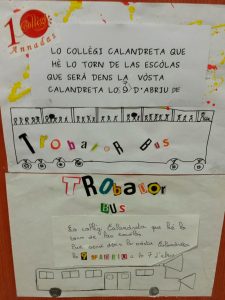 10
Collègi
Annadas
LO COLLÈGI CALANDRETA QUE
HÈ LO TORN DE LAS ESCÒLAS
QUE SERÀ DENS LA VÒSTA
CALANDRETA LO: 9 D'ABRIU DE
TrobadOR Bus
TRObador
BUS
Lo collègi Calandreta que hè lo
torn de las escòlas
Que serà dens la vòsta Calandreta
lo 9 D'ABRIU a